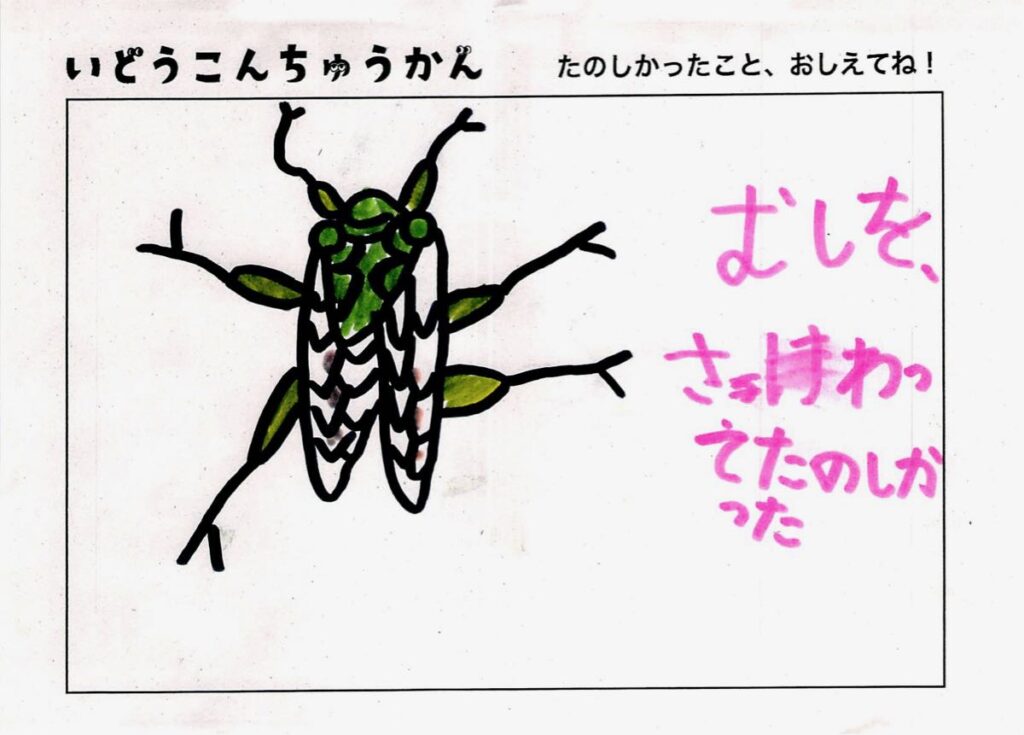 いどうこんちゅうかん
たのしかったこと、おしえてね！
むしを、
さわっ
てたのしか
った